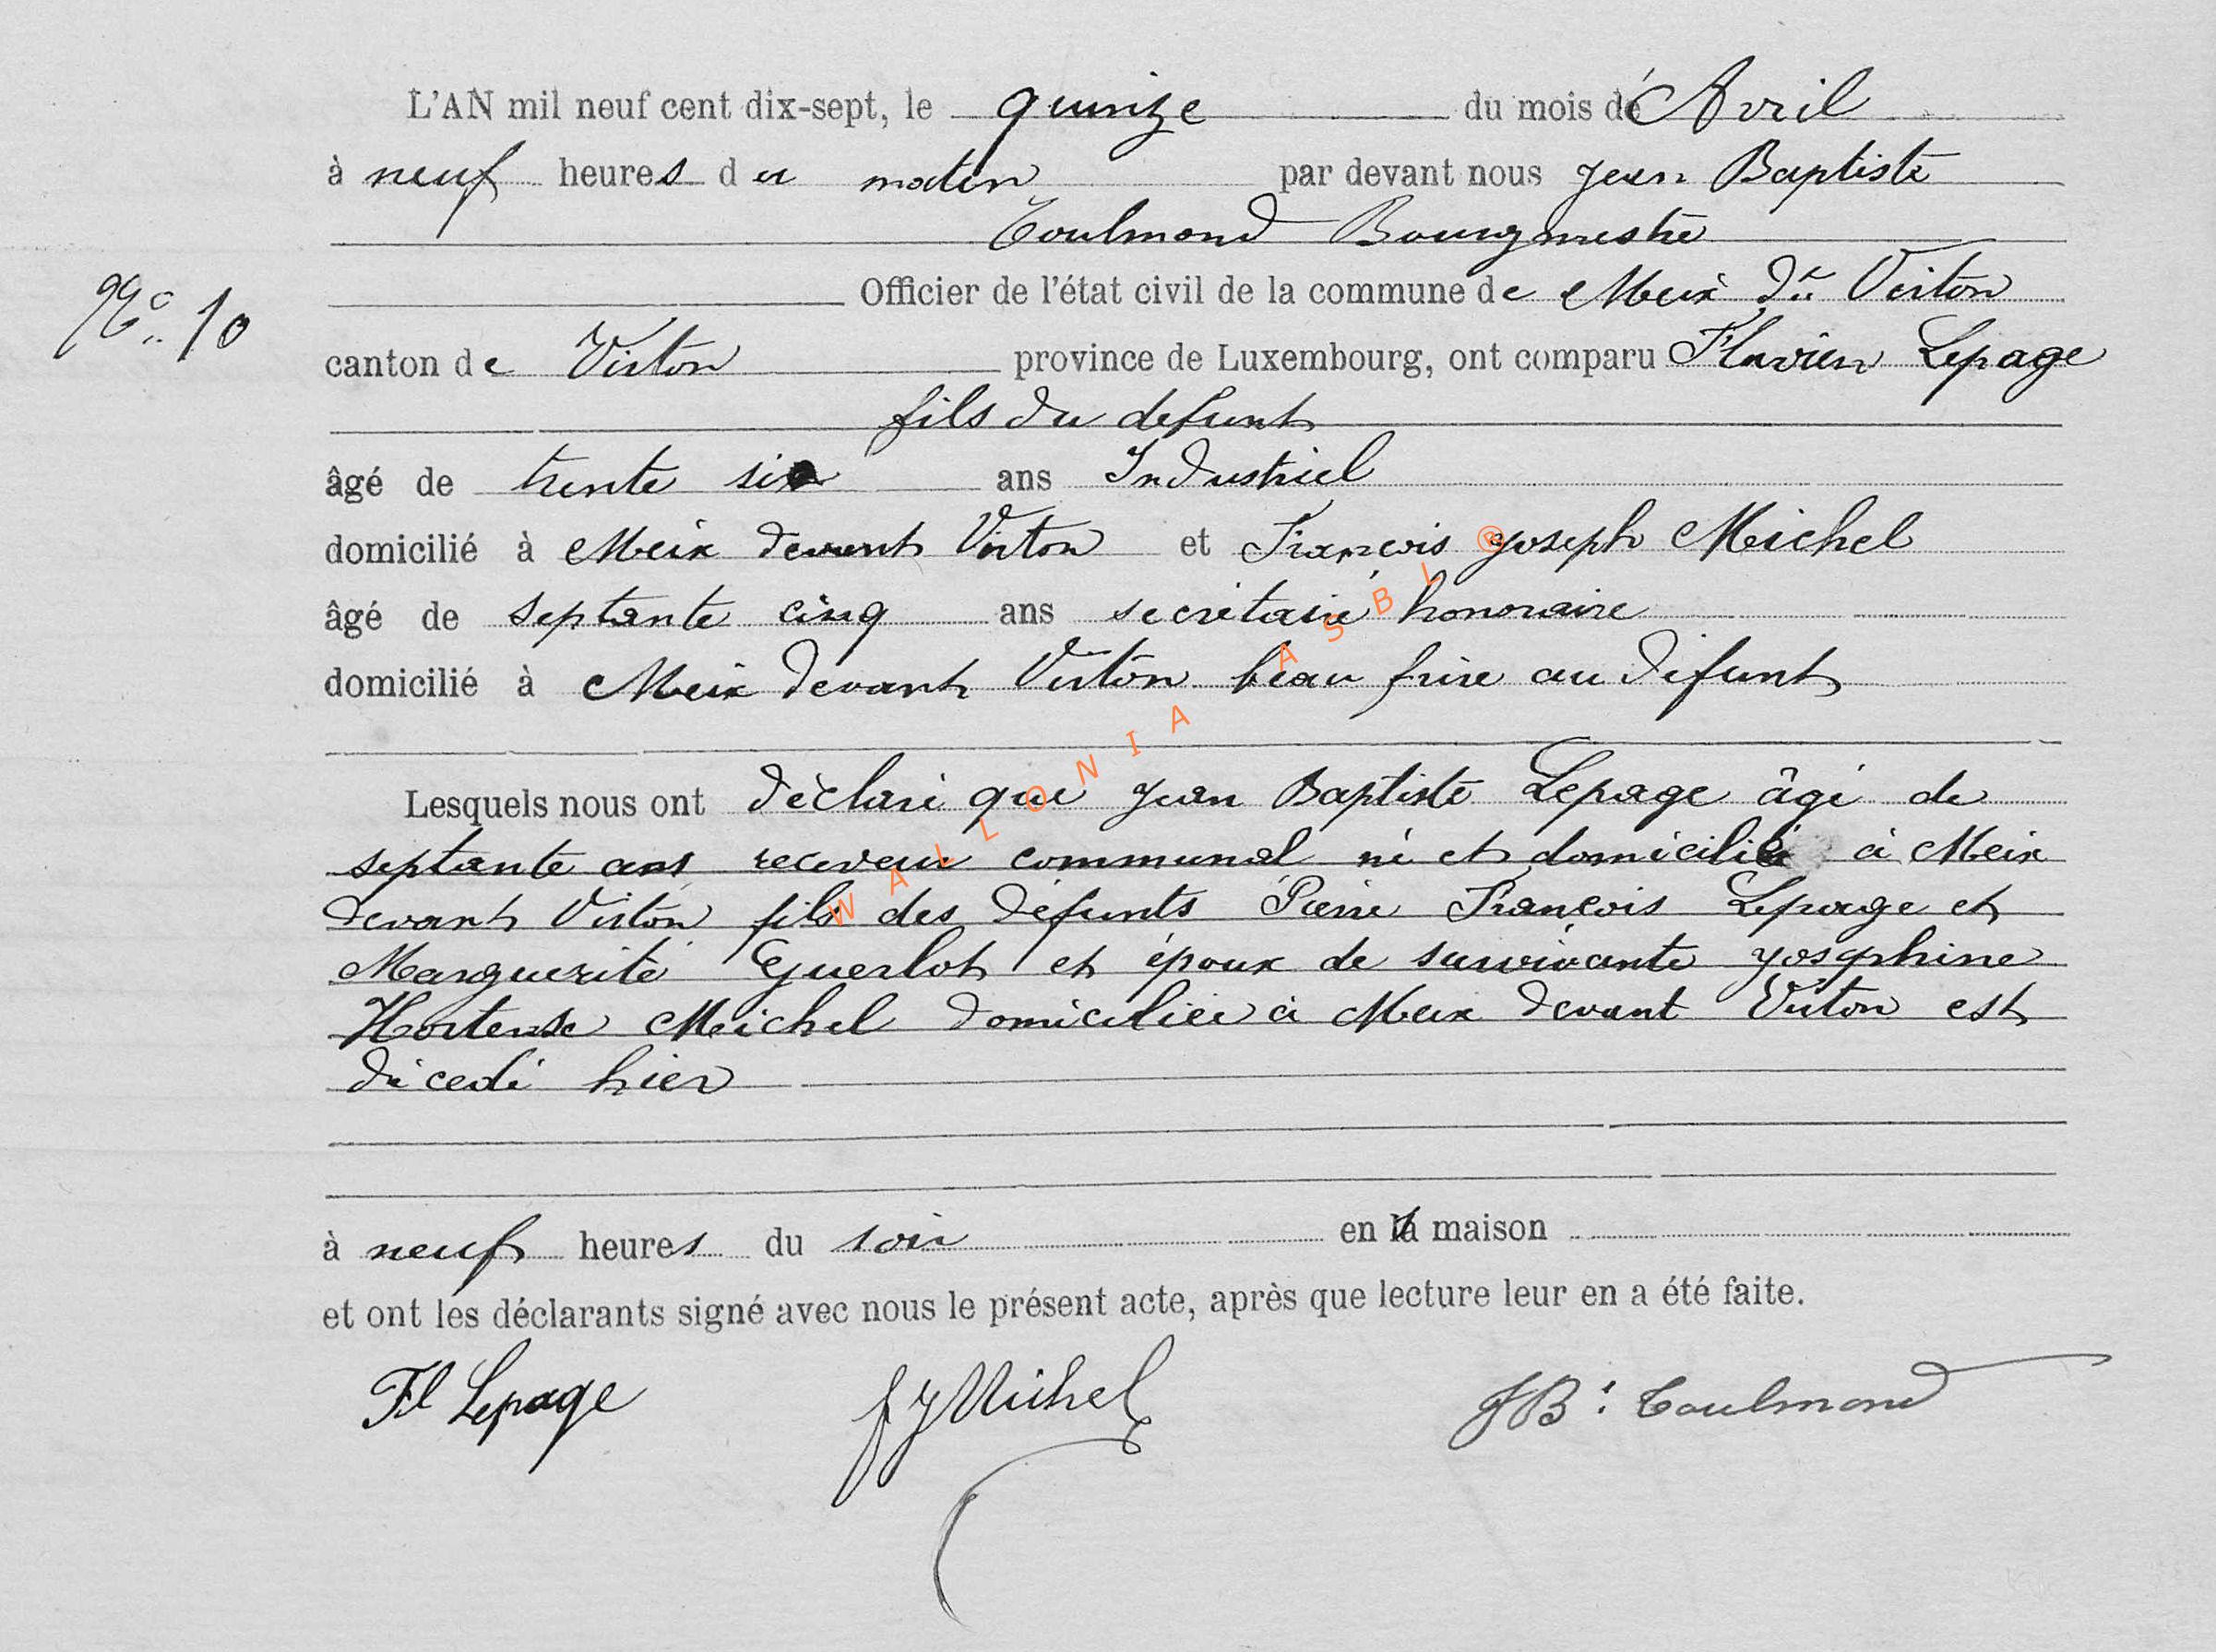 L'AN mil neuf cent dix-sept, le quinze du mois d'Avril
à neuf heures du matin par devant nous Jean Baptiste
Toulmond Bourgmestre
N° 10
Officier de l'état civil de la commune de Meix dt Virton
canton de Virton province de Luxembourg, ont comparu Flavien Lepage
fils du defunt
âgé de trente six ans Industriel
domicilié à Meix devant Virton et François Joseph Michel
âgé de septante cinq ans secrétaire honoraire
domicilié à Meix devant Virton beau frère au défunt
Lesquels nous ont déclaré que Jean Baptiste Lepage âgé de
septante ans receveur communal né et domicilié à Meix
devant Virton fils des défunts Pierre François Lepage et
Marguerite Guerlot et époux de survivante Josephine
Hortense Michel domiciliée à Meix devant Virton est
décédé hier
à neuf heures du soir en sa maison
et ont les déclarants signé avec nous le présent acte, après que lecture leur en a été faite.
Fl Lepage fJMichel JBte Toulmond
WALLONIA ASBL ®